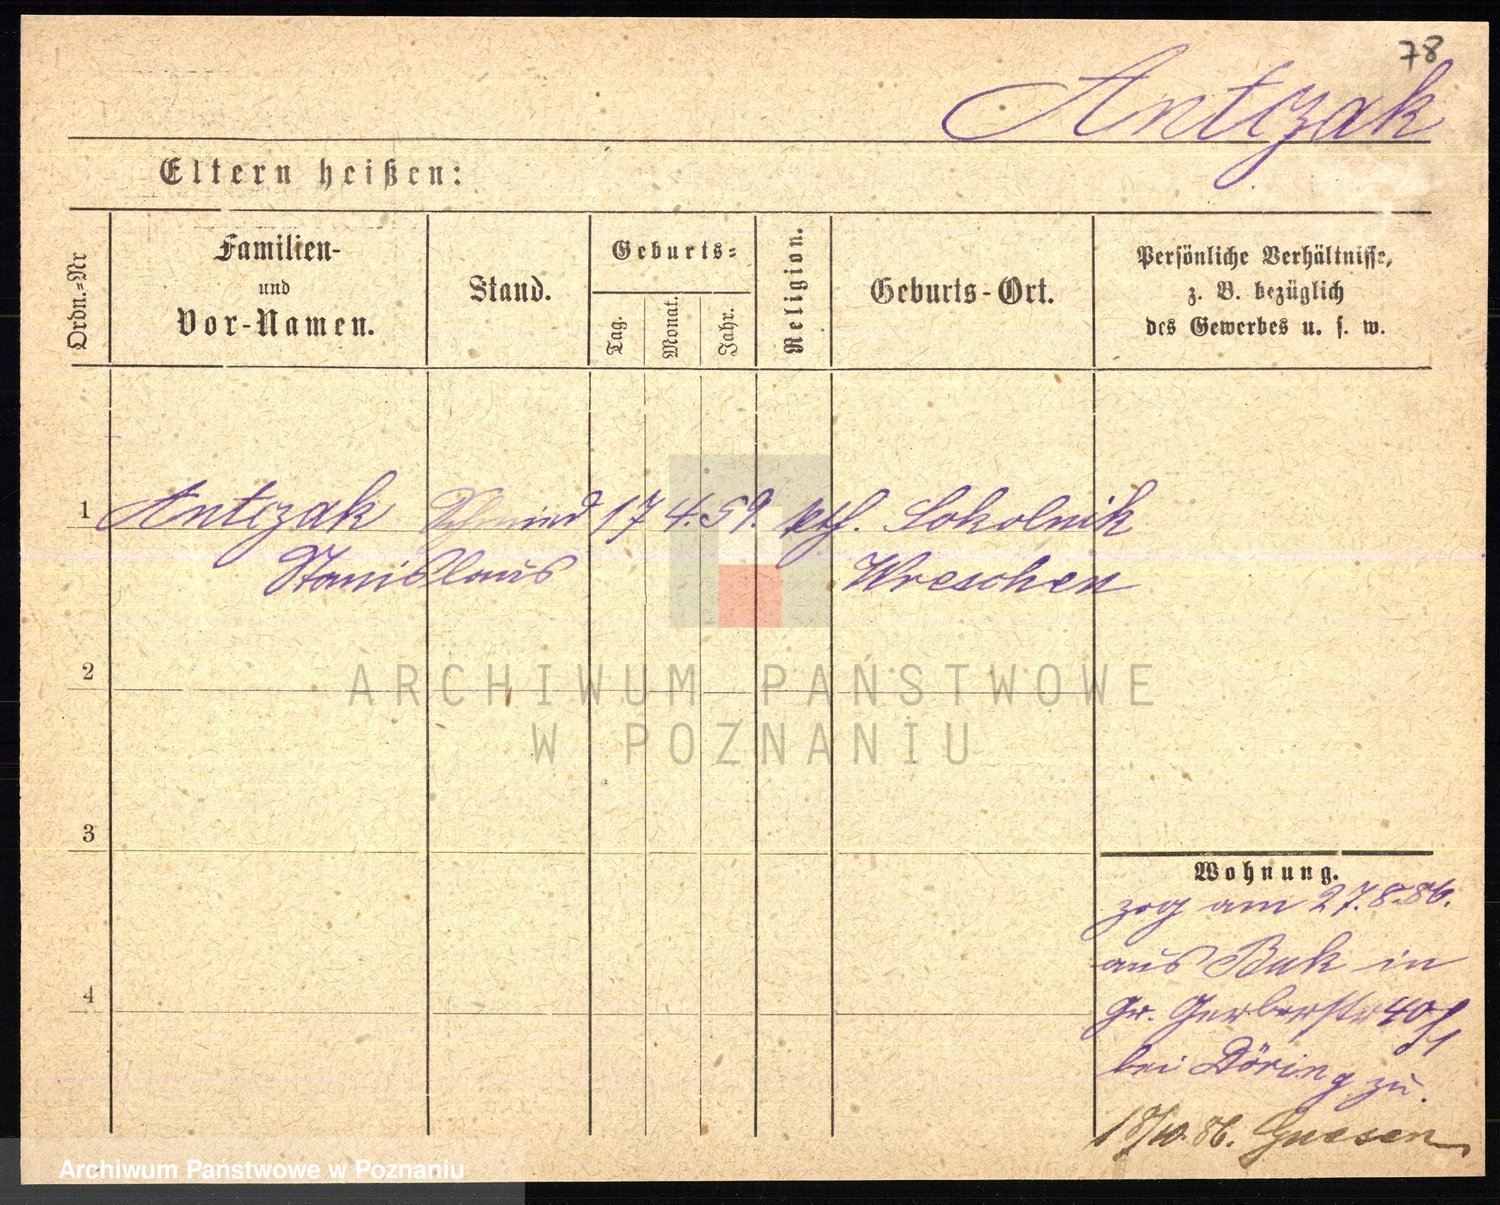 78
Antczak
Eltern heißen:
Ordn.=Nr
Familien-
und
Vor-Namen.
Stand.
Geburts=
Tag.
Monat.
Jahr.
Religion.
Geburts-Ort.
Persönliche Verhältnisse,
z. B. bezüglich
des Gewerbes u. s. w.
1 Antczak Schmied 17 4. 59. kth. Sokolnik
Stanislaus Wreschen
2
ARCHIWUM PAŃSTWOWE
W POZNANIU
3
4
Wohnung.
zog am 27.8.86.
aus Buk in
Gr. Gerberstr 40
bei Döring zu.
18/10. 86. Gnesen
Archiwum Państwowe w Poznaniu